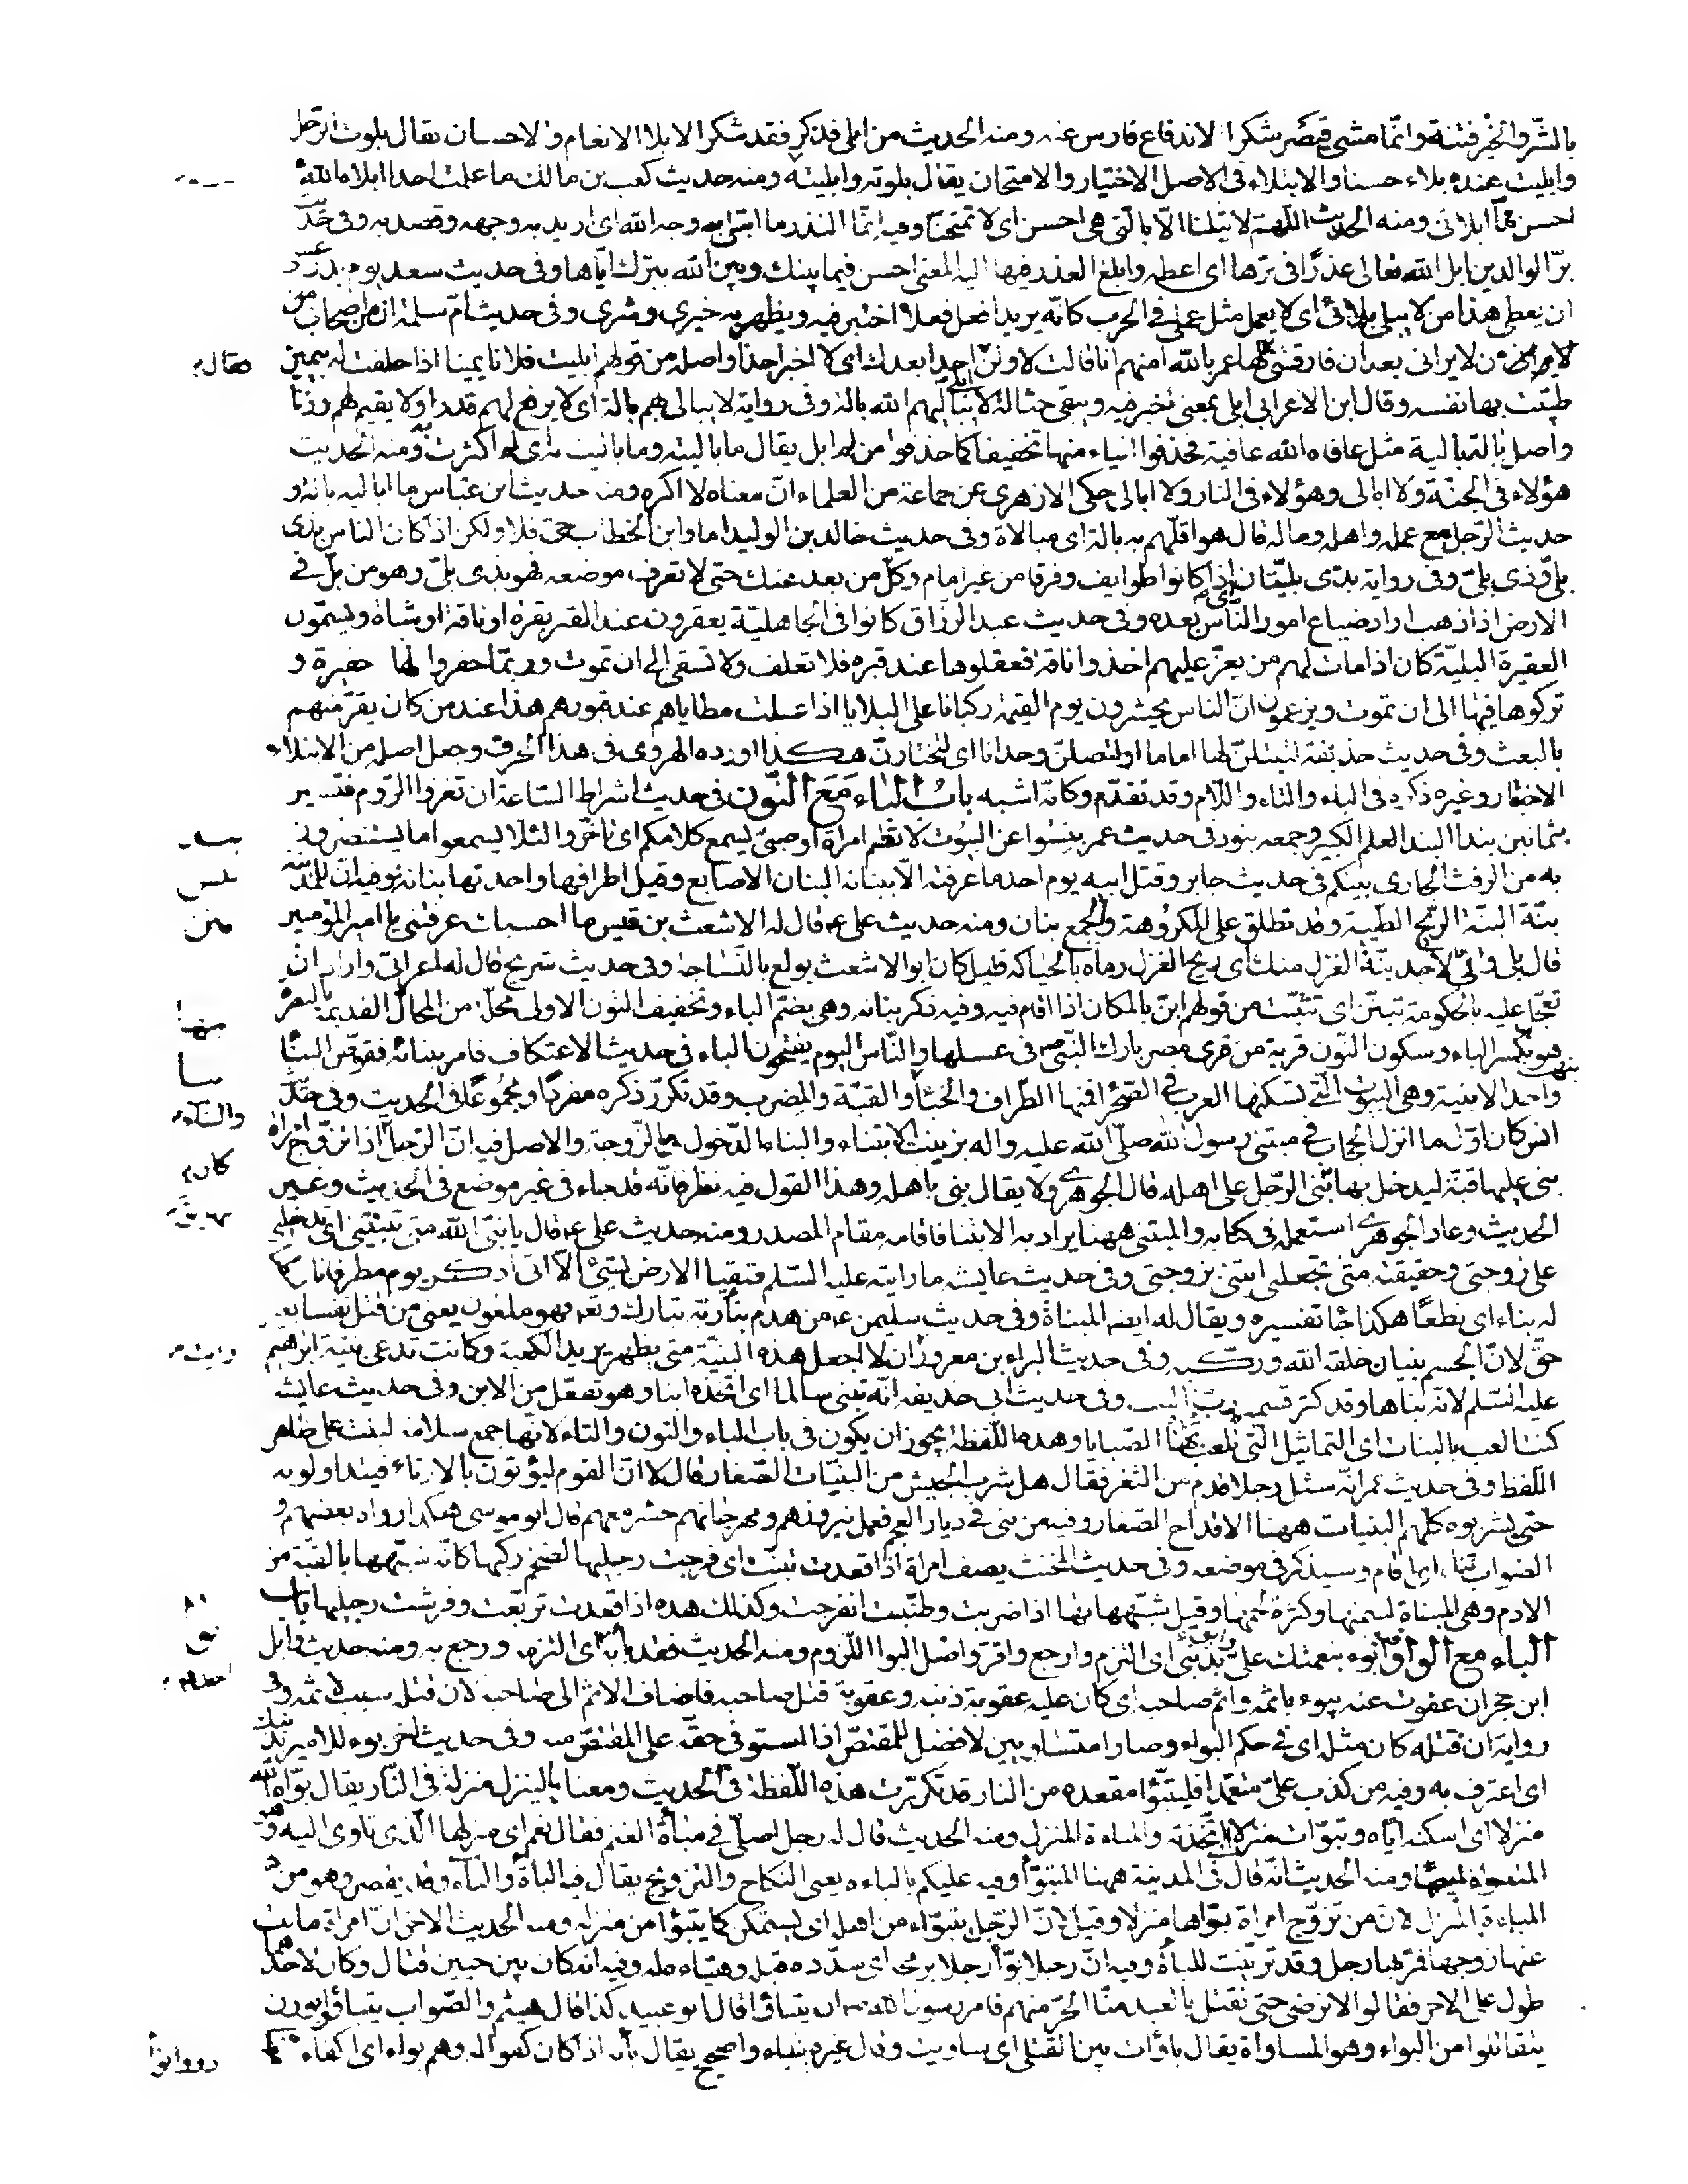 بالشّر والخير فتنة وانّما مشى قيصر شكرا لاندفاع فارس عنه ومنه الحديث من ابلى فذكر فقد شكر الابلا الانعام والاحسان يقال بلوت الرجل
وابليت عنده بلاء حسنا والابتلاء فى الاصل الاختبار والامتحان يقال بلوته وابليته ومنه حديث كعب بن مالك ما علمت احدا ابلاه الله
احسن ممّا ابلانى ومنه الحديث اللّهمّ لا تبلنا الّا بالّتى هى احسن اى لا تمتحنّا وفيه انّما النذر ما ابتلى به وجه الله اى اريد به وجهه وقصد به وفى حديث
برّ الوالدين ابل الله تعالى عذرًا فى برّها اى اعطه وابلغ العذر فيها اليه المعنى احسن فيما بينك وبين الله ببرّك ايّاها وفى حديث سعد يوم بدر عسى
ان يعطى هذا من لا يبلى بلائى اى لا يعمل مثل عملى فى الحرب كانّه يريد افعل فعلا اختبر فيه ويظهر به خيرى وشرى وفى حديث امّ سلمة ان من اصحابى من
لا يرانى بعد ان فارقنى فقال لها عمر بالله امنهم انا قالت لا ولن ابلى احدا بعدك اى لا اخبر احدا واصله من قولهم ابليت فلانا يمينا اذا حلفت له بيمين
طيّبت بها نفسه وقال ابن الاعرابى ابلى بمعنى اخبر فيه وتبقى حثالة لا يباليهم الله بالة وفى رواية لا يبالى بهم بالة اى لا يرفع لهم قدرا ولا يقيم لهم وزنا
واصل بالة بالية مثل عافاه الله عافية فحذفوا الياء منها تخفيفا كما حذفوا من لم ابل يقال ما باليته وما باليت به اى لم اكترث به ومنه الحديث
هؤلاء فى الجنّة ولا ابالى وهؤلاء فى النار ولا ابالى حكى الازهرى عن جماعة من العلماء انّ معناه لا اكره ومنه حديث ابن عبّاس ما اباليه بالة و
حديث الرّجل مع عمله واهله وماله قال هو اقلّهم به بالة اى مبالاة وفى حديث خالد بن الوليد اما وابن الخطاب حىّ فلا ولكن اذا كان الناس بذى
بلىّ وذى بلىّ وفى رواية بذى بليّان اى اذا كانوا طوايف وفرقا من غير امام وكلّ من بعد عنك حتى لا تعرف موضعه فهو بذى بلىّ وهو من بلّ فى
الارض اذا ذهب اراد ضياع امور النّاس بعده وفى حديث عبد الرزّاق كانوا فى الجاهليّة يعقرون عند القبر بقرة او ناقة او شاة ويسمّون
العقيرة البليّة كان اذا مات لهم من يعزّ عليهم اخذوا ناقة فعقلوها عند قبره فلا تعلف ولا تسقى الى ان تموت وربّما حفروا لها حفيرة و
تركوها فيها الى ان تموت ويزعمون انّ الناس يحشرون يوم القيمة ركبانا على البلايا اذا عقلت مطاياهم عند قبورهم هذا عند من كان يقرّ منهم
بالبعث وفى حديث حذيفة لتبتلنّ لها اماما او لتصلنّ وحدانا اى لتختارنّ هكذا اورده الهروى فى هذا الحرف وجعل اصله من الابتلاء
الاختبار وغيره ذكره فى الباء والتاء واللّام وقد تقدّم وكانّه اشبه باب الباء مع النّون فى حديث اشراط السّاعة ان تغزوا الرّوم فتسير
بثمانين بندا البند العلم الكبير وجمعه بنود فى حديث عمر بنسّوا عن البيوت لا تطم امراة او صبىّ يسمع كلامكم اى تأخّروا لئلّا يسمعوا ما يستضرون
به من الرفث الجارى بينكم فى حديث جابر وقتل ابيه يوم احد ما عرفته الّا ببنانه البنان الاصابع وقيل اطرافها واحدتها بنانة وفيه انّ للمدينة
بنّة البنّة الرّيح الطيّبة وقد تطلق على المكروهة والجمع بنان ومنه حديث على ع قال له الاشعث بن قيس ما احسبك عرفتنى يا امير المؤمنين
قال بلى وانّى لاجد بنّة الغزل منك اى ريح الغزل رماه بالحياكة قيل كان ابو الاشعث يولع بالنّساجة وفى حديث شريح قال له اعرابىّ واراد ان
تعجّل عليه بالحكومة تبنّن اى تثبّت من قولهم ابنّ بالمكان اذا اقام فيه وفيه ذكر بنانه وهى بضمّ الباء وتخفيف النون الاولى محلّة من المحالّ القديمة بالبصرة
بنها هو بكسر الباء وسكون النّون قرية من قرى مصر بارك النّبى ص فى عسلها والنّاس اليوم يفتحون الباء فى حديث الاعتكاف فامر ببنائه فقوّض البناء
واحد الابنية وهى البيوت الّتى تسكنها العرب فى الصّحراء فمنها الطّراف والخباء والقبّة والمضرب وقد تكرّر ذكره مفردًا ومجموعًا فى الحديث وفى حديث
انس كان اوّل ما انزل الحجاب فى مبتنى رسول الله صلّى الله عليه واله بزينب الابتناء والبناء الدّخول بالزّوجة والاصل فيه انّ الرّجل اذا تزوّج امراة
بنى عليها قبّة ليدخل بها بنى الرّجل على اهله قال الجوهرى ولا يقال بنى باهله وهذا القول فيه نظر فانّه قد جاء فى غير موضع فى الحديث وغير
الحديث وعاد الجوهرى استعمله فى كتابه والمبتنى ههنا يراد به الابتنا فاقامه مقام المصدر ومنه حديث على ع قال يا نبىّ الله متى تبنينى اى تدخلنى
على زوجتى وحقيقته متى تجعلنى ابتنى بزوجتى وفى حديث عايشة ما رايته عليه السّلم متّقيا الارض بشئ الّا انّى اذكر يوم مطر فانا بسطنا
له بناء اى نطعًا هكذا جاء تفسيره ويقال له ايضا المبناة وفى حديث سليمن ع من هدم بناء ربّه تبارك وتع فهو ملعون يعنى من قتل نفسا بغير
حقّ لانّ الجسم بنيان خلقه الله وركّبه وفى حديث البراء بن معرور ان لا اجعل هذه البنيّة منّى بظهر يريد الكعبة وكانت تدعى بنيّة ابرهيم
عليه السّلم لانّه بناها وقد كثر قسمهم بربّ البنية وفى حديث ابى حذيفه انّه تبنى سالما اى اتّخذه ابنا وهو تفعّل من الابن وفى حديث عايشة
كنت العب بالبنات اى التماثيل الّتى تلعب بها الصّبايا وهذه اللّفظة يجوز ان يكون فى باب الباء والنون والتاء لانّها جمع سلامة لبنت على ظاهر
اللّفظ وفى حديث عمر انّه سئل رجلا قدم من الثغر فقال هل شرب الجيش من البنيّات الصّغار قال لا انّ القوم ليؤتون بالاناء فيتداولونه
حتى يشربوه كلّهم البنيات ههنا الاقداح الصّغار وفيه من بنى فى ديار العجم فعمل نيروزهم ومهرجانهم حشر معهم قال ابو موسى هكذا رواه بعضهم و
الصّواب تنأ اى اقام وسيذكر فى موضعه وفى حديث المخنّث يصف امراة اذا قعدت تبنّت اى فرجت رجليها لضخم ركبها كانّه شبّهها بالقبّة من
الادم وهى المبناة لسمنها وكثرة لحمها وقيل شبّهها بها اذا ضربت وطنّبت انفرجت وكذلك هذه اذا قعدت تربّعت وفرشت رجليها باب
الباء مع الواو ابوء بنعمتك علىّ وابوء بذنبى اى التزم وارجع واقرّ واصل البوا اللّزوم ومنه الحديث فقد باء به اى التزمه ورجع به ومنه حديث وايل
ابن حجر ان عفوت عنه يبوء باثمه واثم صاحبه اى كان عليه عقوبة ذنبه وعقوبة قتل صاحبه فاضاف الاثم الى صاحبه لان قتله سبب لاثمه وفى
رواية ان قتله كان مثله اى فى حكم البواء وصارا متساويين لا فضل للمقتصّ اذا استوفى حقّه على المقتصّ منه وفى حديث اخر بوء للامير بذنبك
اى اعترف به وفيه من كذب علىّ متعمّدا فليتبّوا مقعده من النار قد تكرّرت هذه اللّفظة فى الحديث ومعناها لينزل منزله فى النّار يقال بوّاه الله
منزلا اى اسكنه ايّاه وتبوّات منزلا اى اتّخذته والمباءة المنزل ومنه الحديث قال له رجل اصلّى فى مباءة الغنم فقال نعم اى منزلها الّذى تاوى اليه وهو
المتبوّا ايضا ومنه الحديث انّه قال فى المدينة ههنا المتبوّأ وفيه عليكم بالباءه يعنى النكاح والتزويج يقال فيه الباءة والباء وقد يقصر وهو من
المباءة المنزل لانّ من تزوّج امراة بوّاها منزلا وقيل لانّ الرّجل يتبوّاء من اهله اى يستمكن كما يتبوّا من منزله ومنه الحديث الاخر انّ امراة مات
عنها زوجها فمرّ بها رجل وقد تزيّنت للباءة وفيه انّ رجلا بوّا رجلا برمحه اى سدّده قبله وهيّاه له وفيه انه كان بين حيين قتال وكان لاحدهما
طول على الاخر فقالوا لا نرضى حتى نقتل بالعبد منّا الحرّ منهم فامرهم رسول الله ان يتباءوا قال ابو عبيد كذا قال هشيم والصّواب يتباوؤا بوزن
يتقاتلوا من البواء وهو المساواة يقال باوات بين القتلى اى ساويت وقال غيره يتباءوا صحيح يقال باء به اذا كان كفوا له وهم بواء اى اكفاء